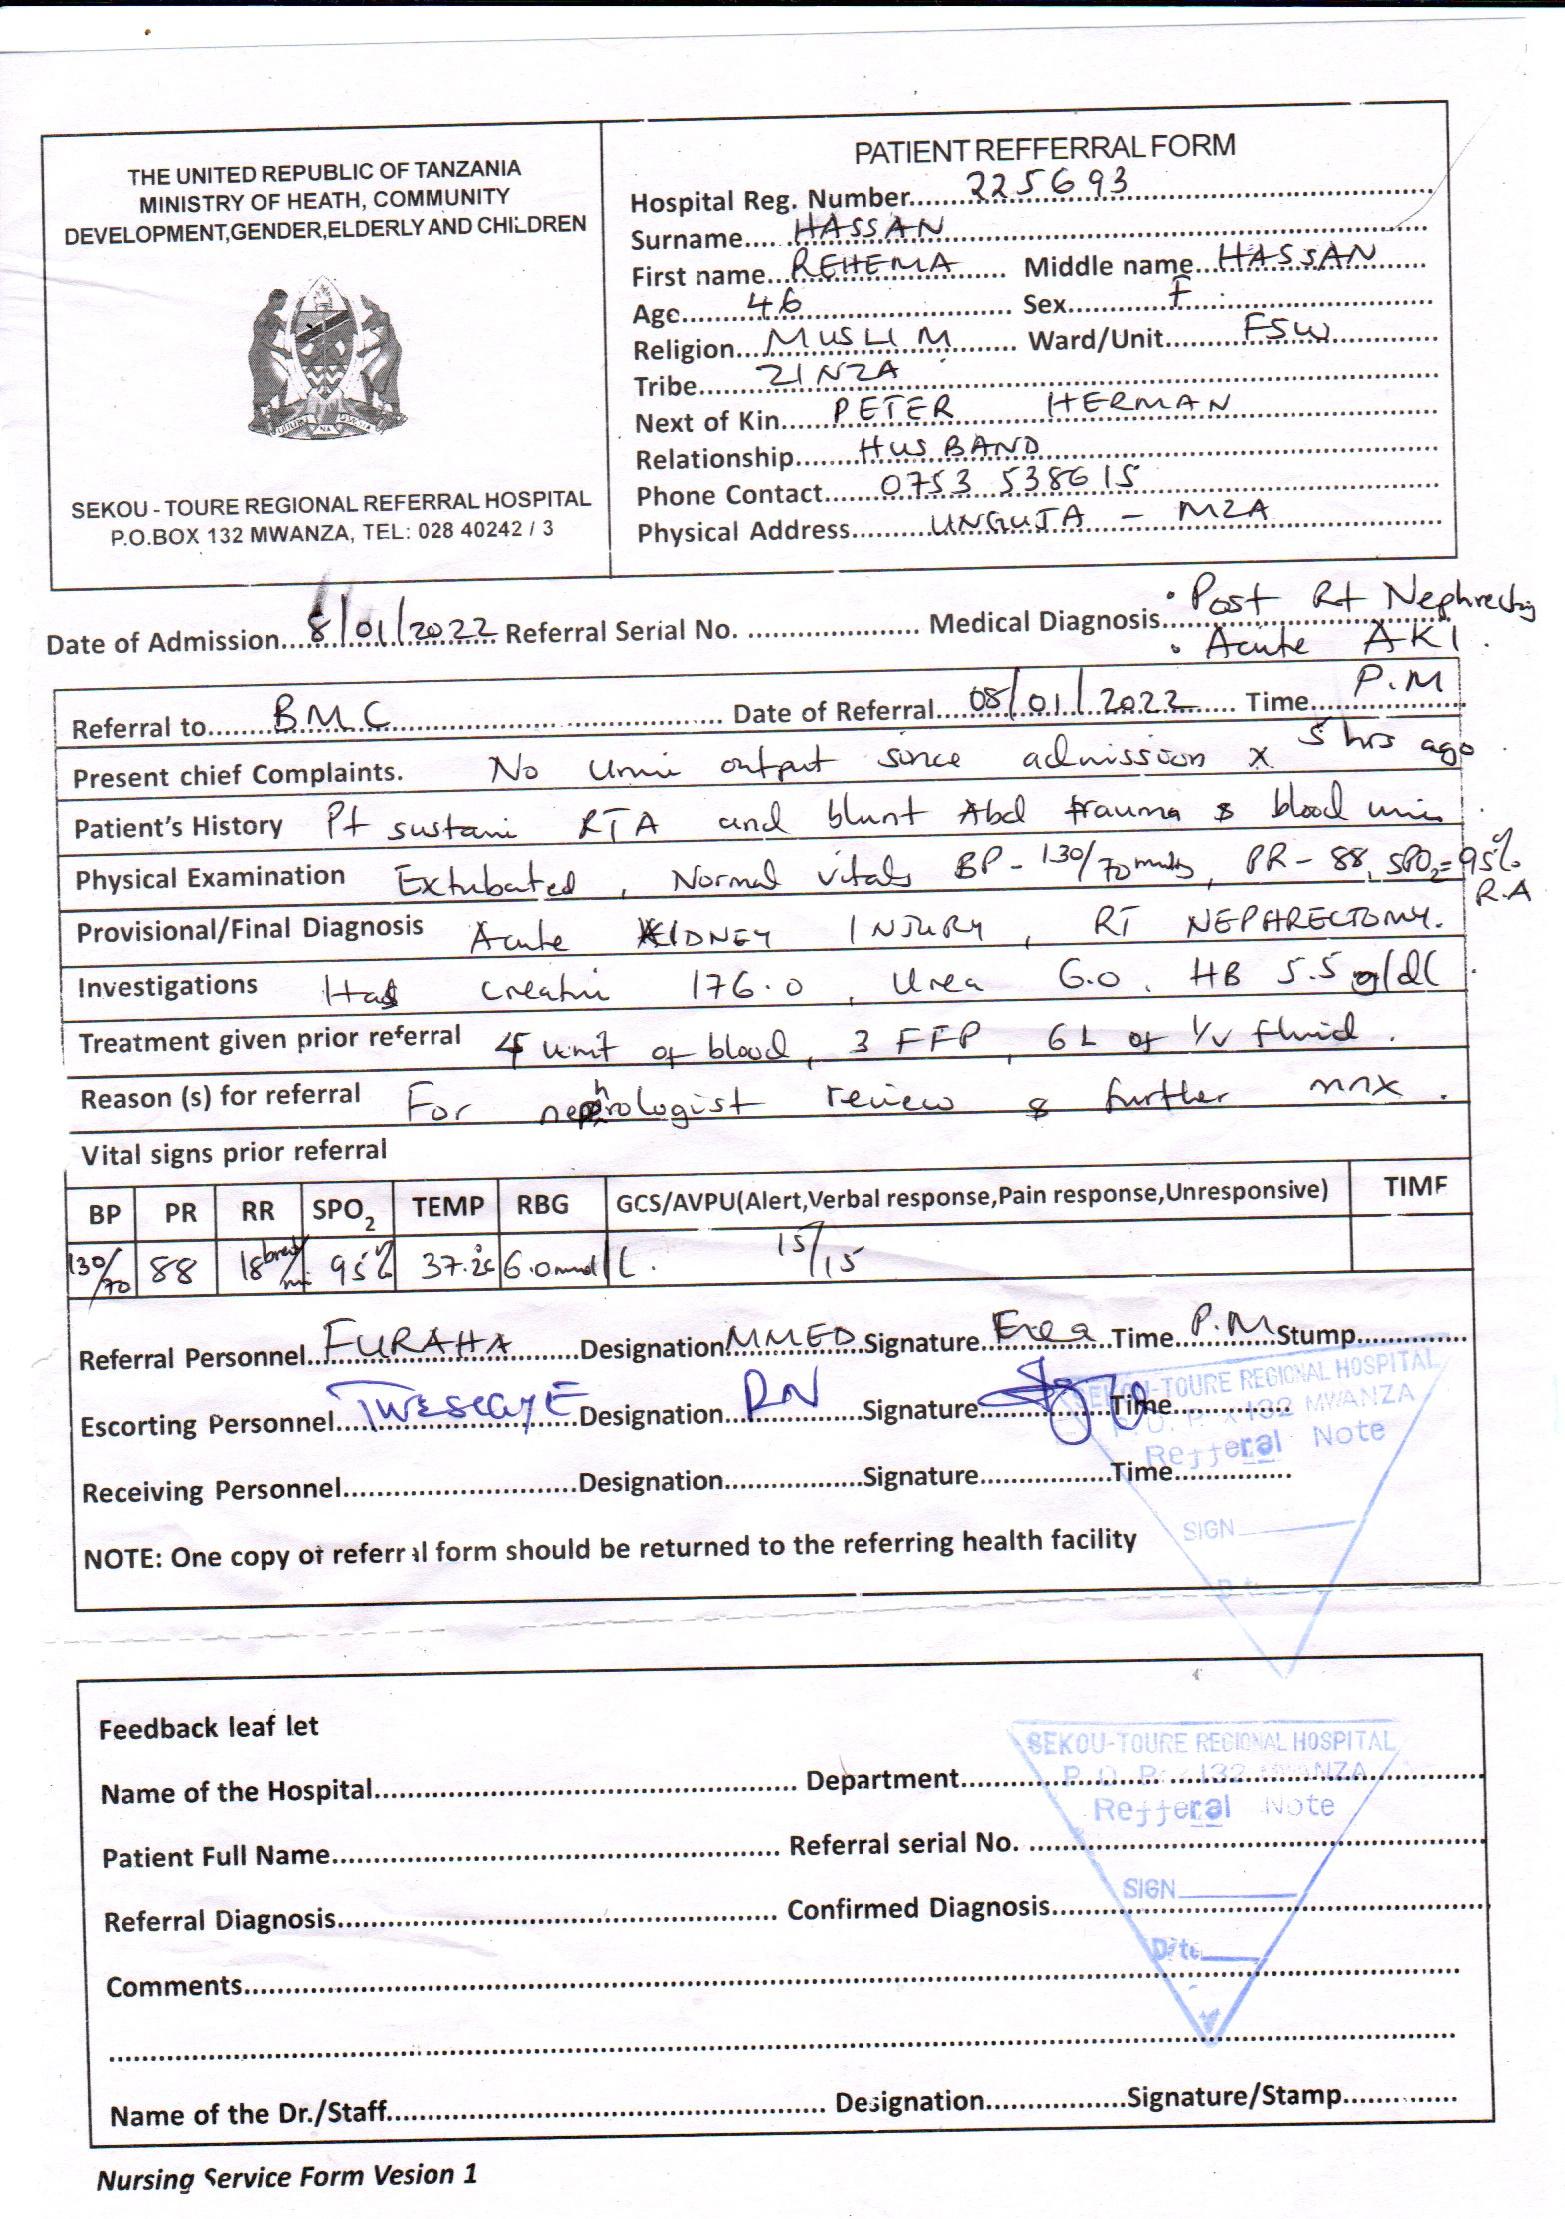 THE UNITED REPUBLIC OF TANZANIA
MINISTRY OF HEATH, COMMUNITY
DEVELOPMENT,GENDER,ELDERLY AND CHILDREN
UHURU NA UMOJA
SEKOU - TOURE REGIONAL REFERRAL HOSPITAL
P.O.BOX 132 MWANZA, TEL: 028 40242 / 3
PATIENT REFFERRAL FORM
Hospital Reg. Number 225693
Surname HASSAN
First name REHEMA Middle name HASSAN
Age 46 Sex F
Religion MUSLIM Ward/Unit FSW
Tribe ZINZA
Next of Kin PETER HERMAN
Relationship HUSBAND
Phone Contact 0753 538615
Physical Address UNGUJA - MZA
Date of Admission 8/01/2022 Referral Serial No. Medical Diagnosis • Post Rt Nephrectomy
• Acute AKI.
Referral to BMC Date of Referral 08/01/2022 Time P.M
Present chief Complaints. No urine output since admission x 5 hrs ago
Patient's History Pt sustain RTA and blunt Abd trauma & blood urine
Physical Examination Extubated, Normal vitals BP - 130/70 mmHg, PR - 88, SPO2 = 95%
R.A
Provisional/Final Diagnosis Acute KIDNEY INJURY, RT NEPHRECTOMY.
Investigations Has creatin 176.0, Urea 6.0. HB 5.5 g/dl.
Treatment given prior referral 4 unit of blood, 3 FFP, 6L of I/V fluid.
Reason (s) for referral For nephrologist review & further mnx.
Vital signs prior referral
BP PR RR SPO2 TEMP RBG GCS/AVPU(Alert,Verbal response,Pain response,Unresponsive) TIME
130/70 88 18 95% 37.2c 6.0mmol/L. 15/15
Referral Personnel FURAHA Designation MMED Signature Time P.M Stump
Escorting Personnel Designation RN Signature Time
Receiving Personnel Designation Signature Time
NOTE: One copy of referral form should be returned to the referring health facility
SEKOU-TOURE REGIONAL HOSPITAL
P.O. B x 132 MWANZA
Refferal Note
SIGN
Date
Feedback leaf let
Name of the Hospital Department
Patient Full Name Referral serial No.
Referral Diagnosis Confirmed Diagnosis
Comments
Name of the Dr./Staff Designation Signature/Stamp
SEKOU-TOURE REGIONAL HOSPITAL
P.O. B 132 MWANZA
Refferal Note
SIGN
Date
Nursing Service Form Vesion 1